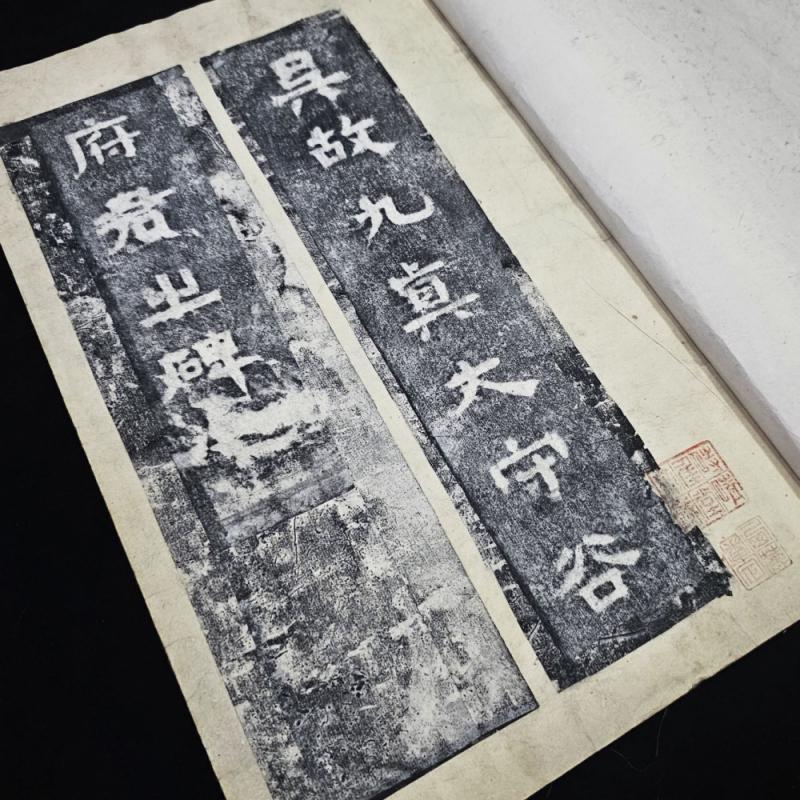 吴故九真大守谷
府君之碑